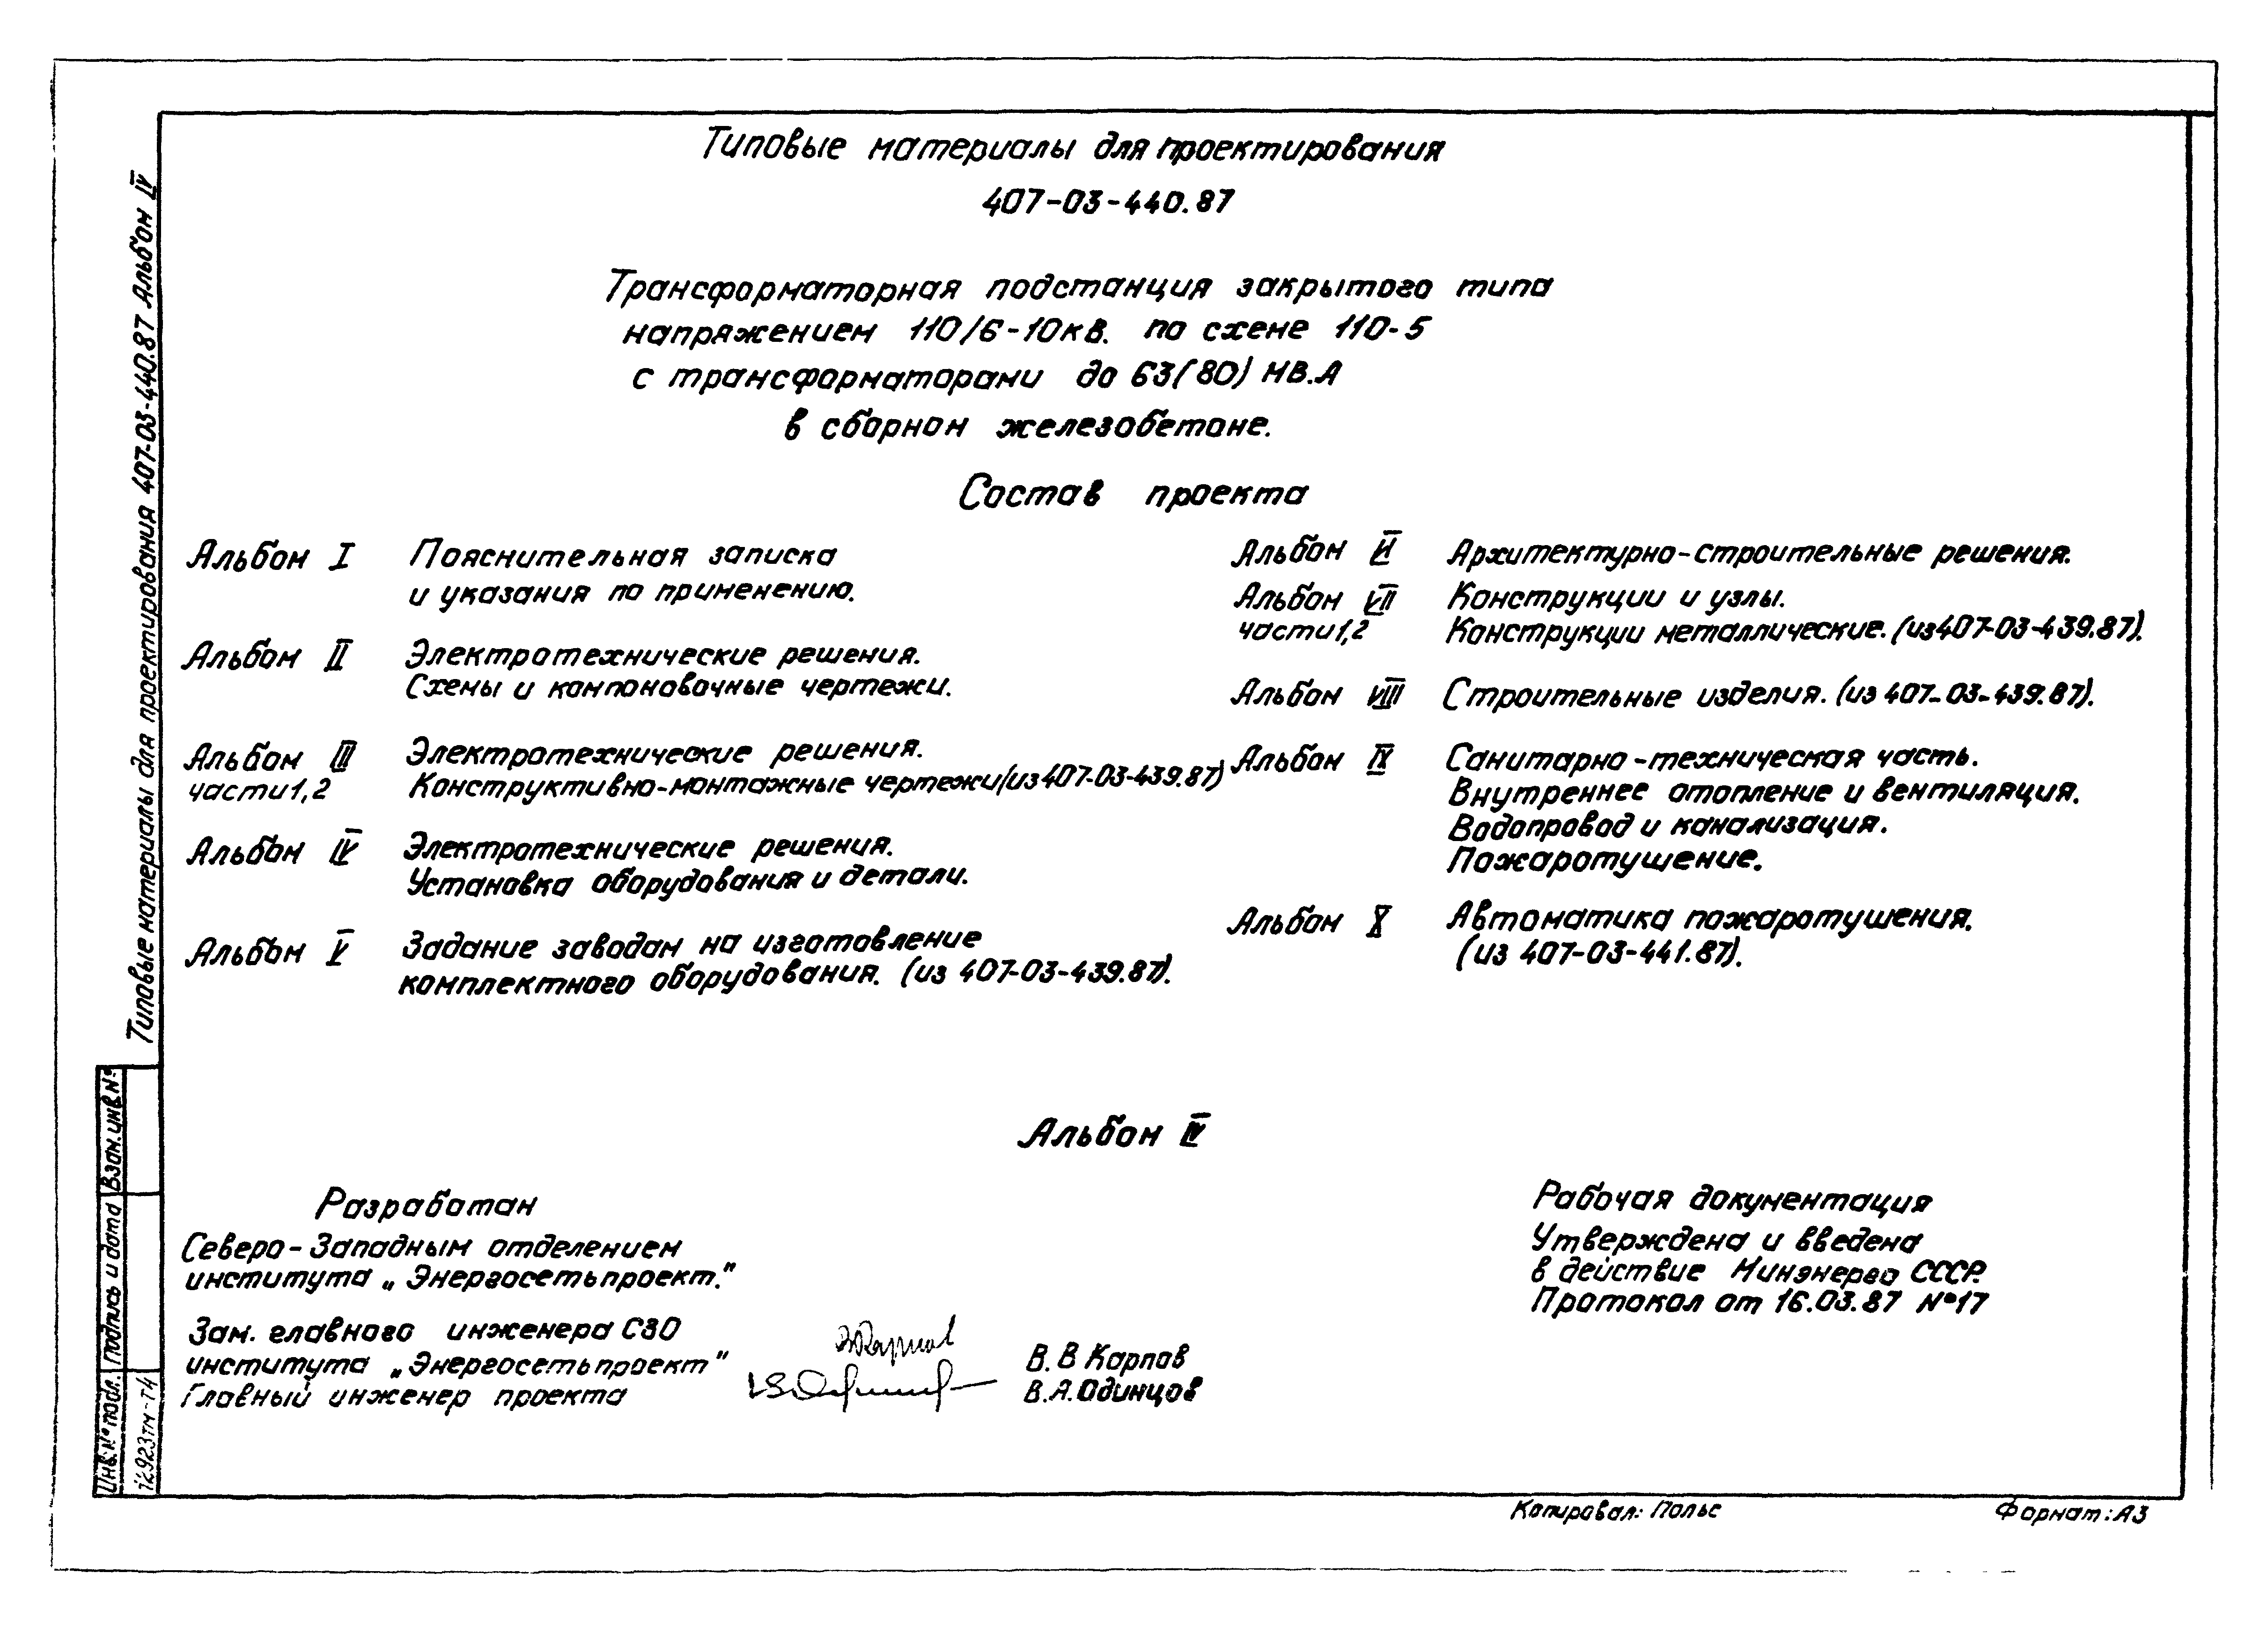 Типовые материалы для проектирования
407-03-440.87
Трансформаторная подстанция закрытого типа
напряжением 110/6-10кВ. по схеме 110-5
с трансформаторами до 63(80) МВ.А
в сборном железобетоне.
Состав проекта
Альбом I Пояснительная записка
и указания по применению.
Альбом II Электротехнические решения.
Схемы и компоновочные чертежи.
Альбом III Электротехнические решения.
части 1,2 Конструктивно-монтажные чертежи (из 407-03-439.87)
Альбом IV Электротехнические решения.
Установка оборудования и детали.
Альбом V Задание заводам на изготовление
комплектного оборудования. (из 407-03-439.87).
Альбом VI Архитектурно-строительные решения.
Альбом VII Конструкции и узлы.
части 1,2 Конструкции металлические. (из 407-03-439.87).
Альбом VIII Строительные изделия. (из 407-03-439.87).
Альбом IX Санитарно-техническая часть.
Внутреннее отопление и вентиляция.
Водопровод и канализация.
Пожаротушение.
Альбом X Автоматика пожаротушения.
(из 407-03-441.87).
Альбом IV
Разработан
Северо-Западным отделением
института „Энергосетьпроект."
Зам. главного инженера СЗО
института „Энергосетьпроект" В. В Карпов
Главный инженер проекта В.А.Одинцов
Рабочая документация
Утверждена и введена
в действие Минэнерго СССР.
Протокол от 16.03.87 №17
Копировал: Польс
Формат: А3
Типовые материалы для проектирования 407-03-440.87 Альбом IV
Взам. инв. №
Подпись и дата
Инв. № подл.
12923тм-т4